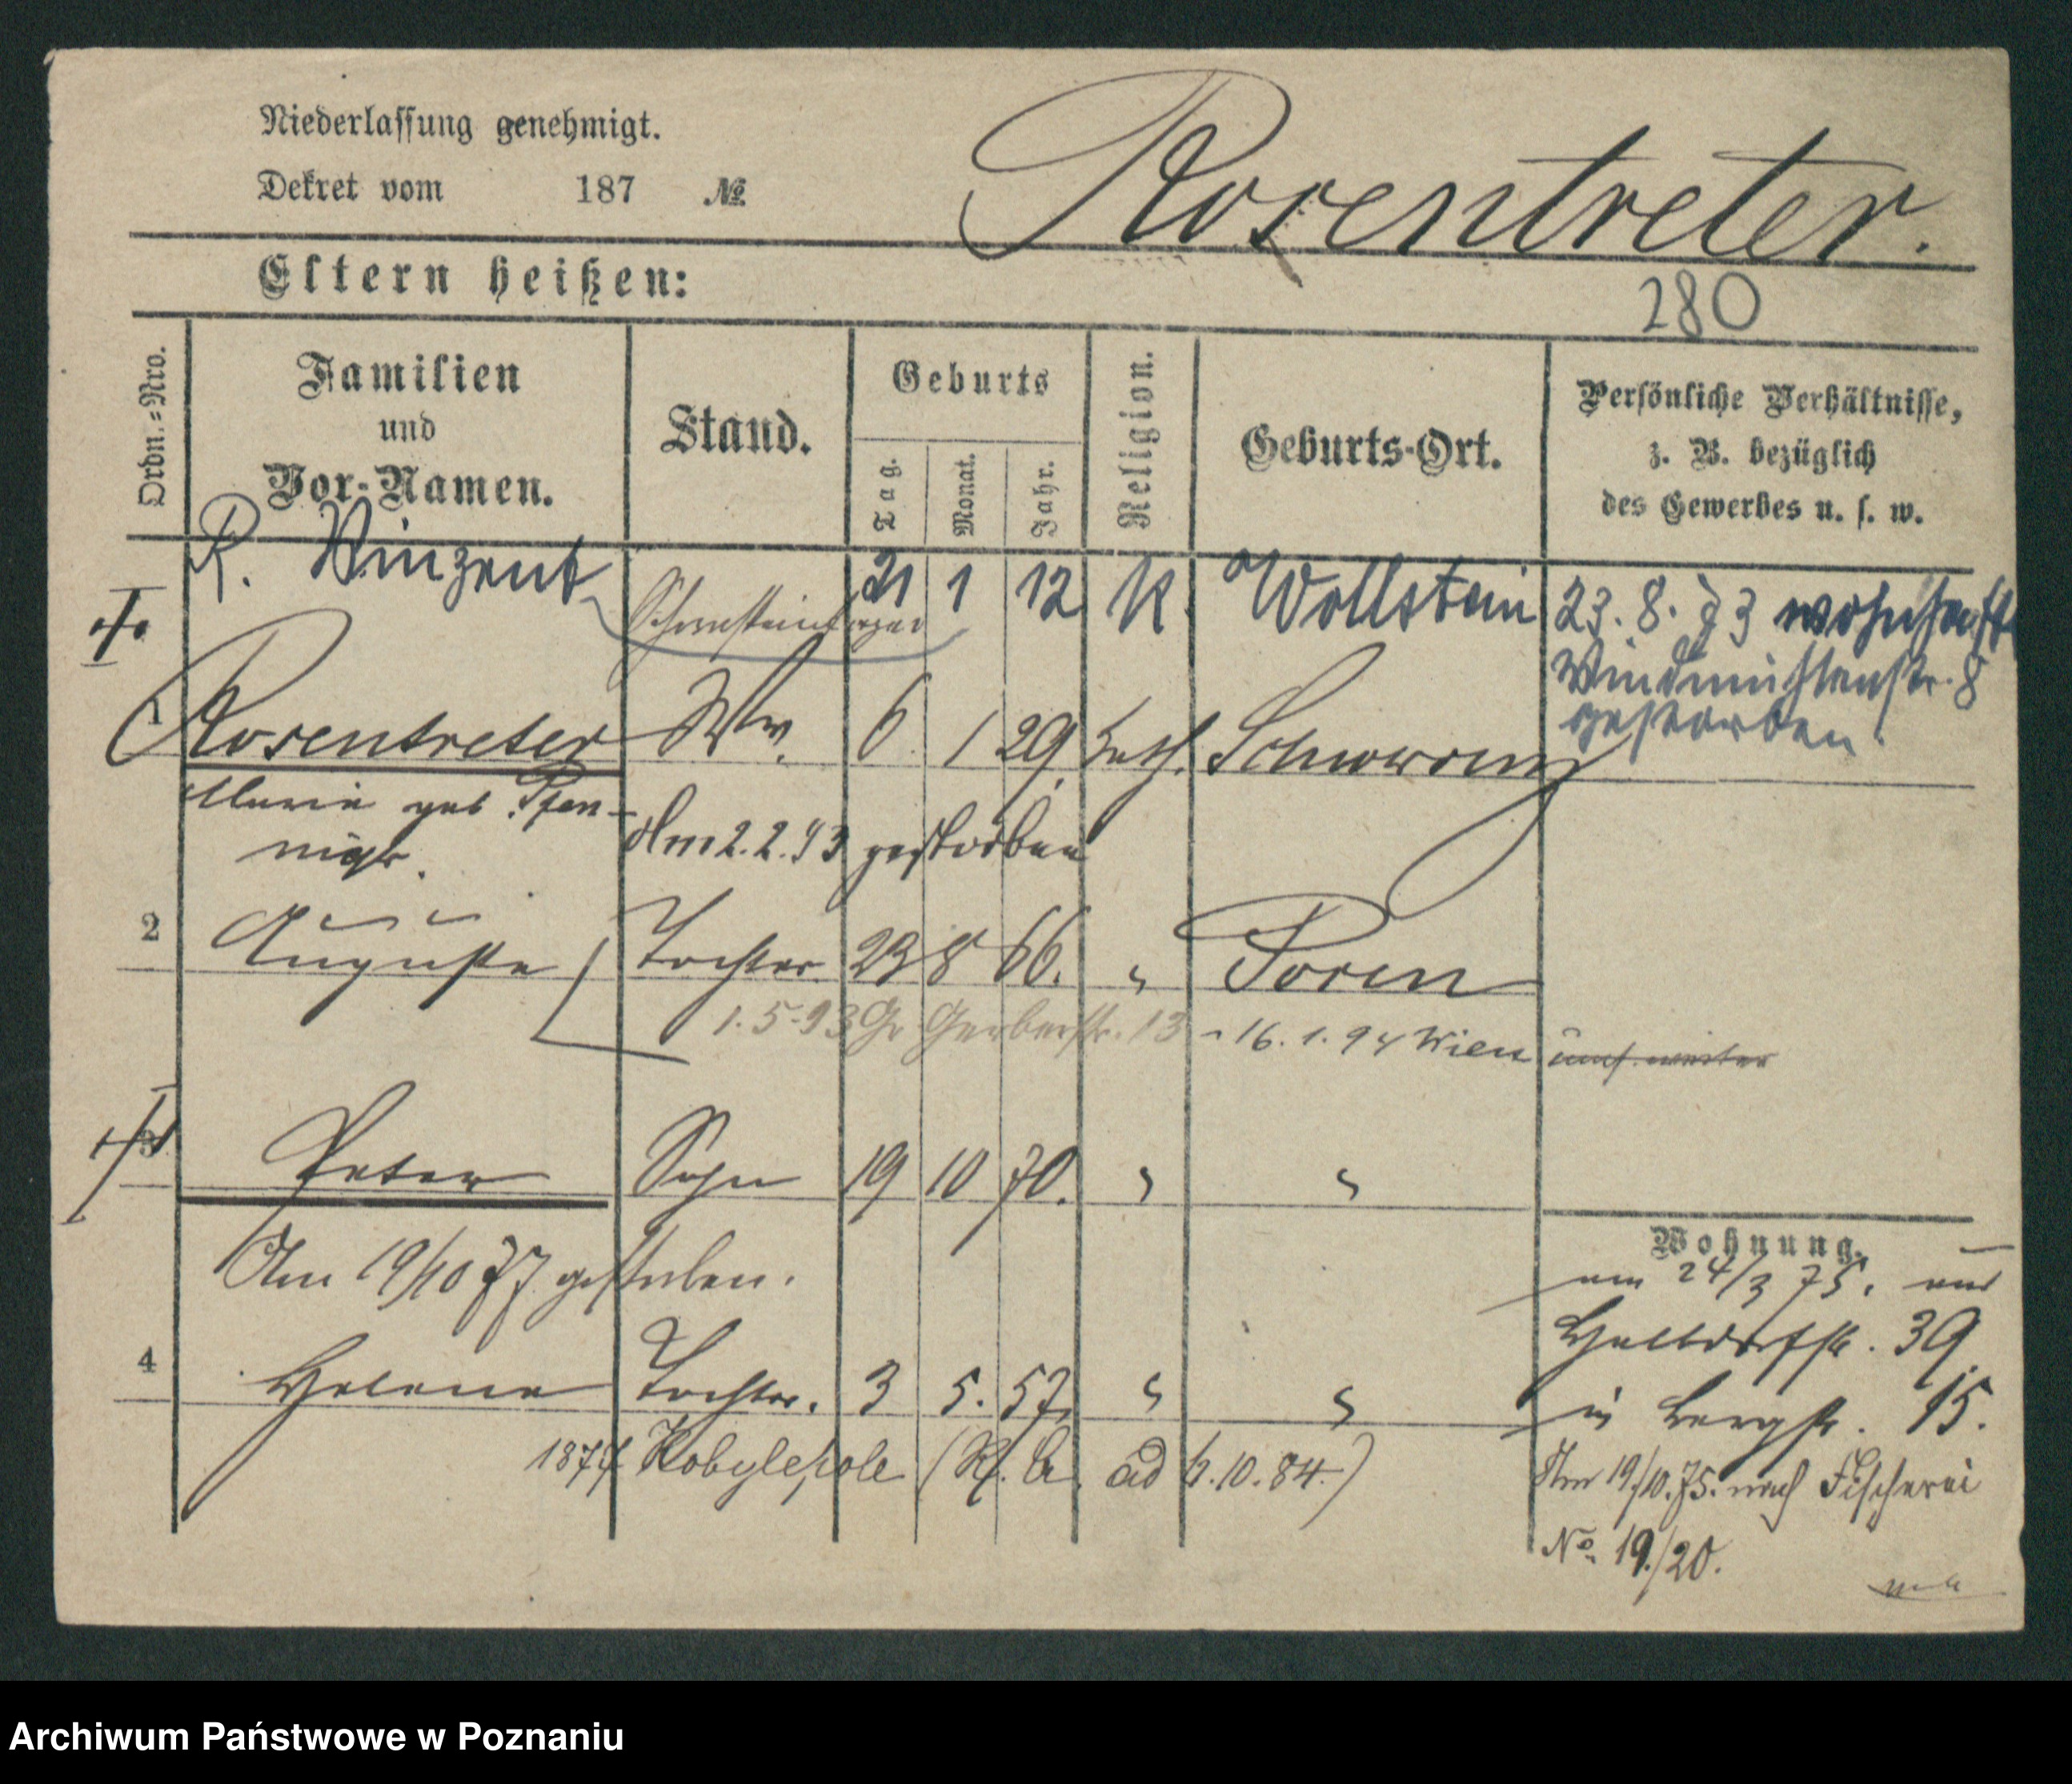 Niederlassung genehmigt.
Dekret vom 187 №
Rosentreter.
Eltern heißen:
280
Ordn.=Nro.
Familien
und
Vor-Namen.
Stand.
Geburts
Tag.
Monat.
Jahr.
Religion.
Geburts-Ort.
Persönliche Verhältnisse,
z. B. bezüglich
des Gewerbes u. s. w.
R. Vinzent Schornsteinfeger 21 1 12 K. Wollstein 23. 8. 73 wohnhaft
Windmühlenstr. 8
gestorben.
1 Rosentreter Ww. 6. 1 29. kath. Schwersenz
Maria geb Pfen-
nigk.
Am 2. 2. 93 gestorben
2 Auguste Tochter 23 8 66. " Posen
1. 5. 93 Gr Gerberstr. 13 - 16. 1. 94 Wien
3 Peter Sohn 19 10 70. " "
Am 19/10 77 gestorben.
4 Helene Tochter. 3 5. 57. " "
1877 Kobylepole ( ad 6. 10. 84.)
Wohnung.
am 24/3 75. aus
Halbdorfstr. 39
in Bergstr. 15.
Am 19/10. 75. nach Fischerei
No. 19./20.
Archiwum Państwowe w Poznaniu